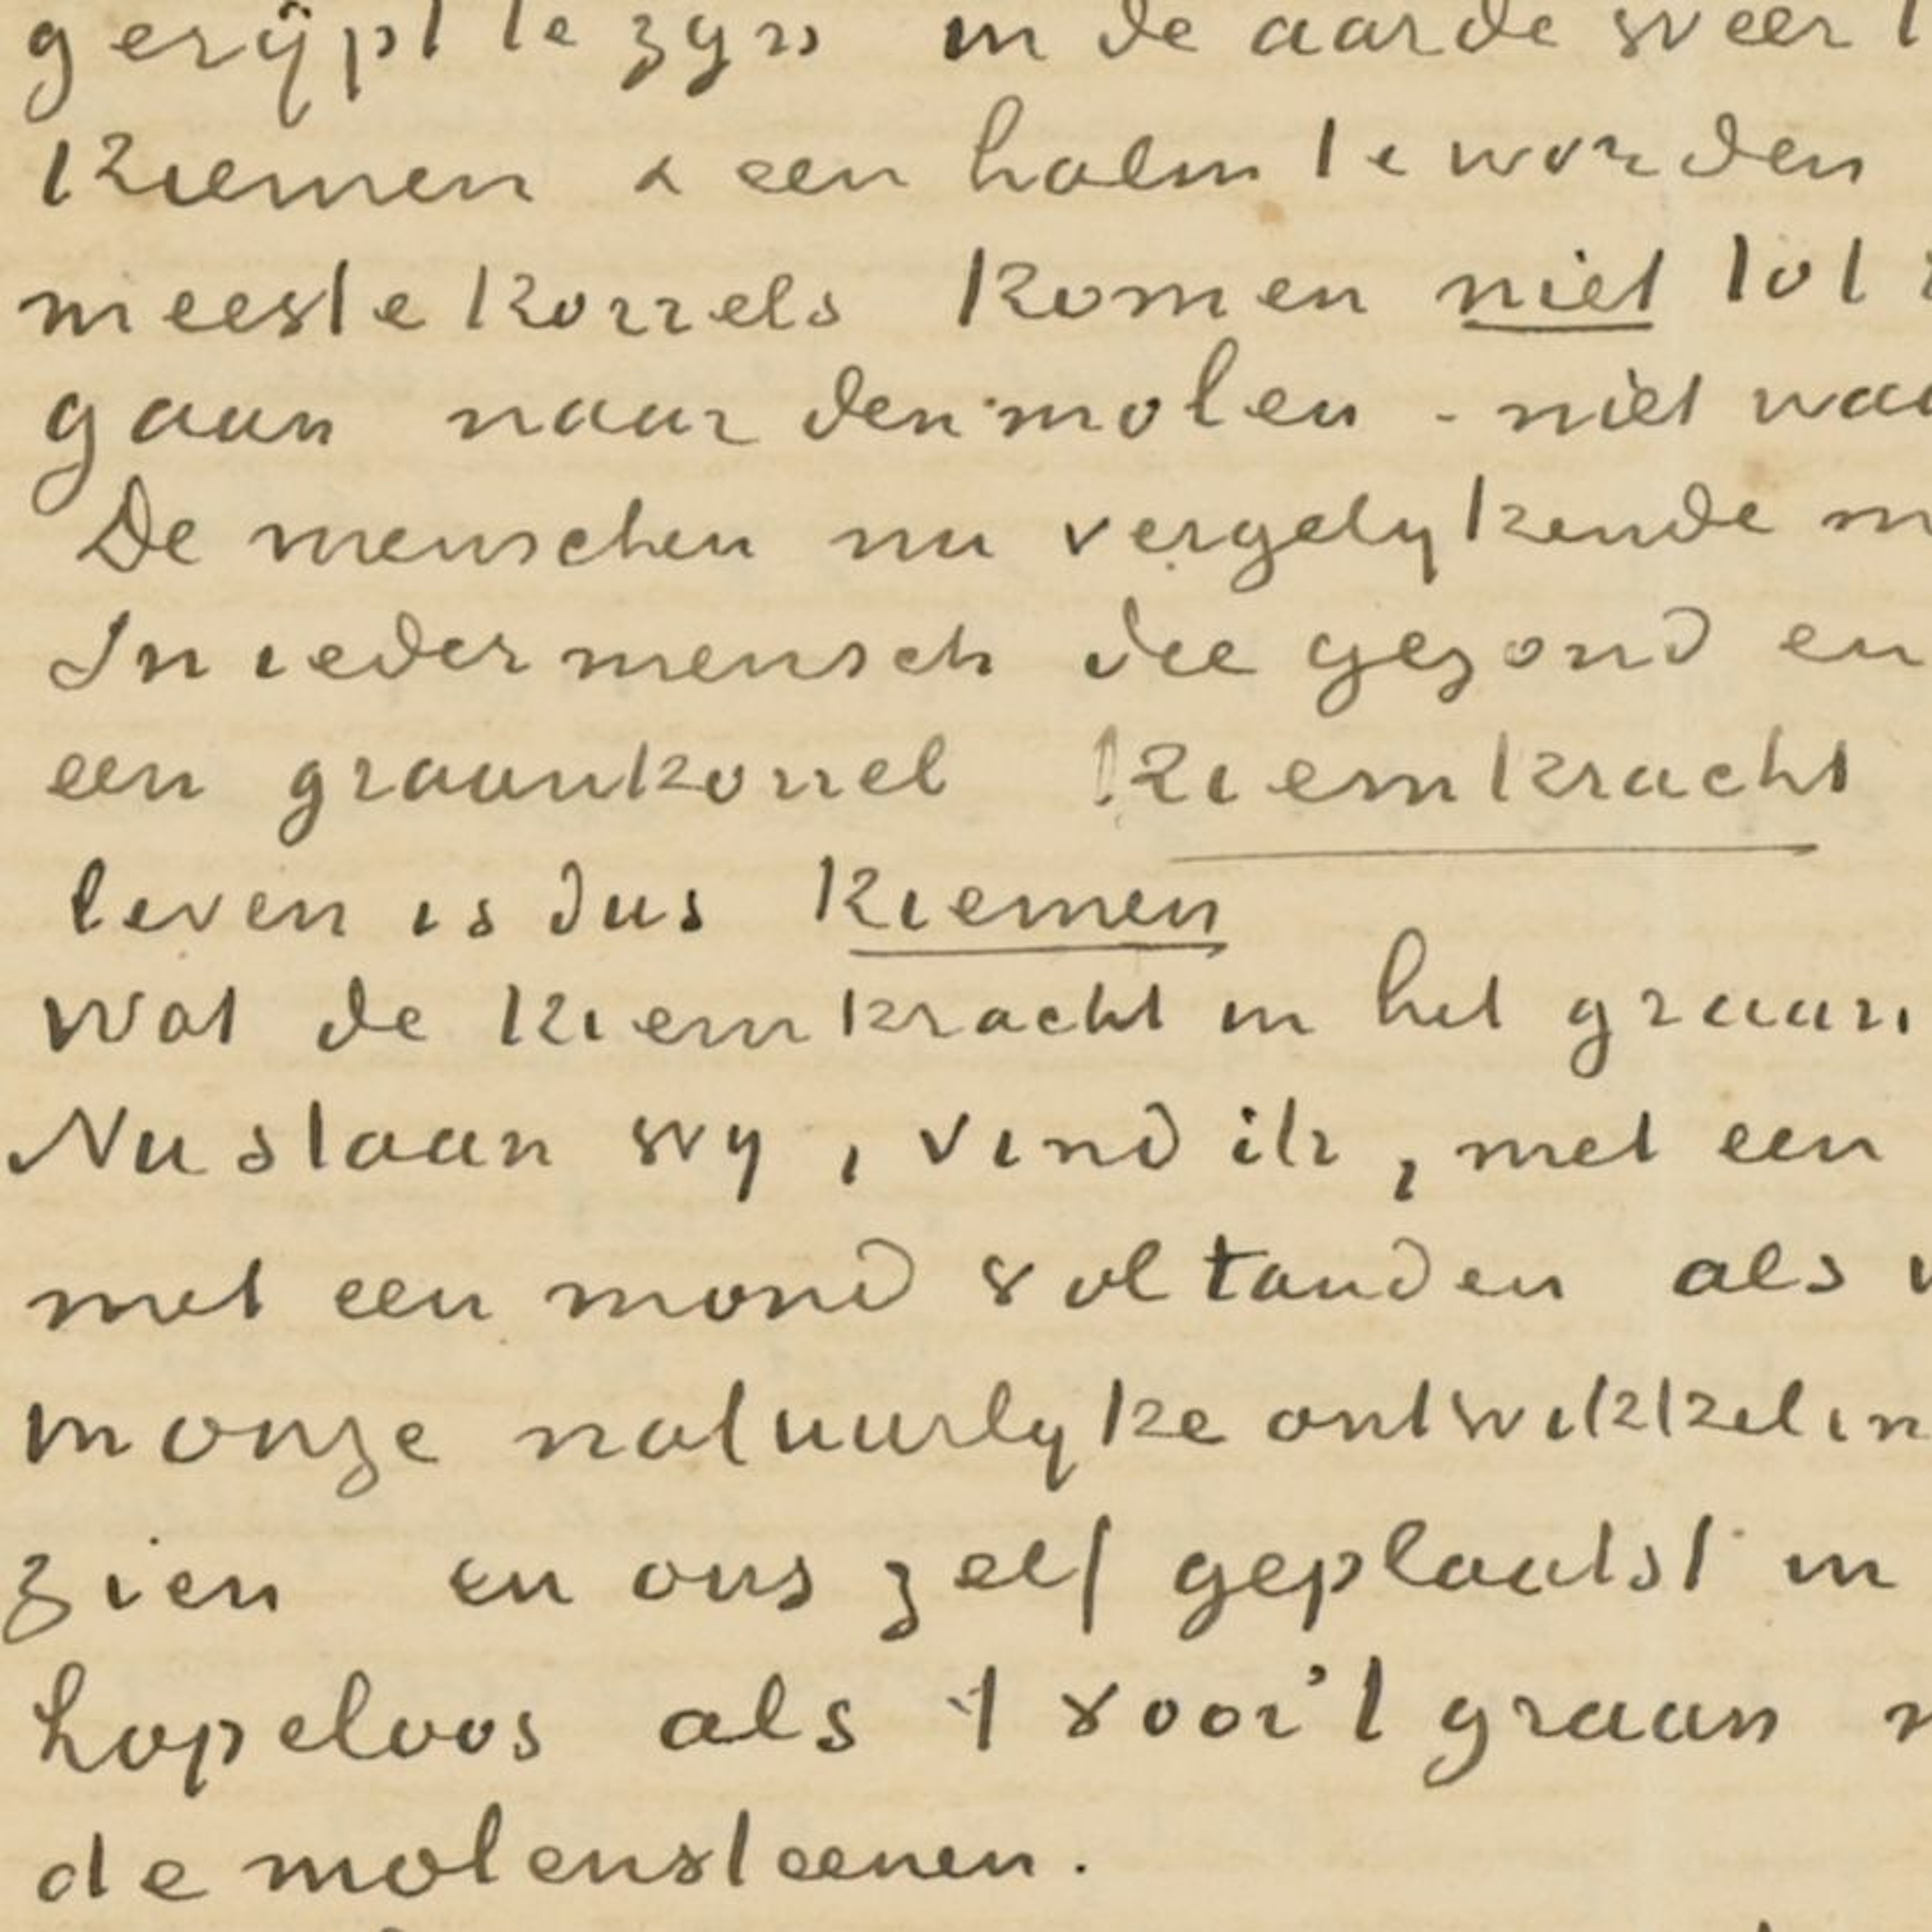 gerÿpt te zyn in de aarde weer
kiemen & een halm te worden
meeste korrels komen niet tot
gaan naar den molen - niet
De menschen nu vergelykende
In ieder mensch die gezond en
een graankorrel kiemkracht
leven is dus kiemen
Wat de kiemkracht in het graan
Nu staan wy, vind ik, met een
met een mond vol tanden als
in onze natuurlyke ontwikkelin
zien en ons zelf geplaatst in
hopeloos als 't voor 't graan
de molensteenen.